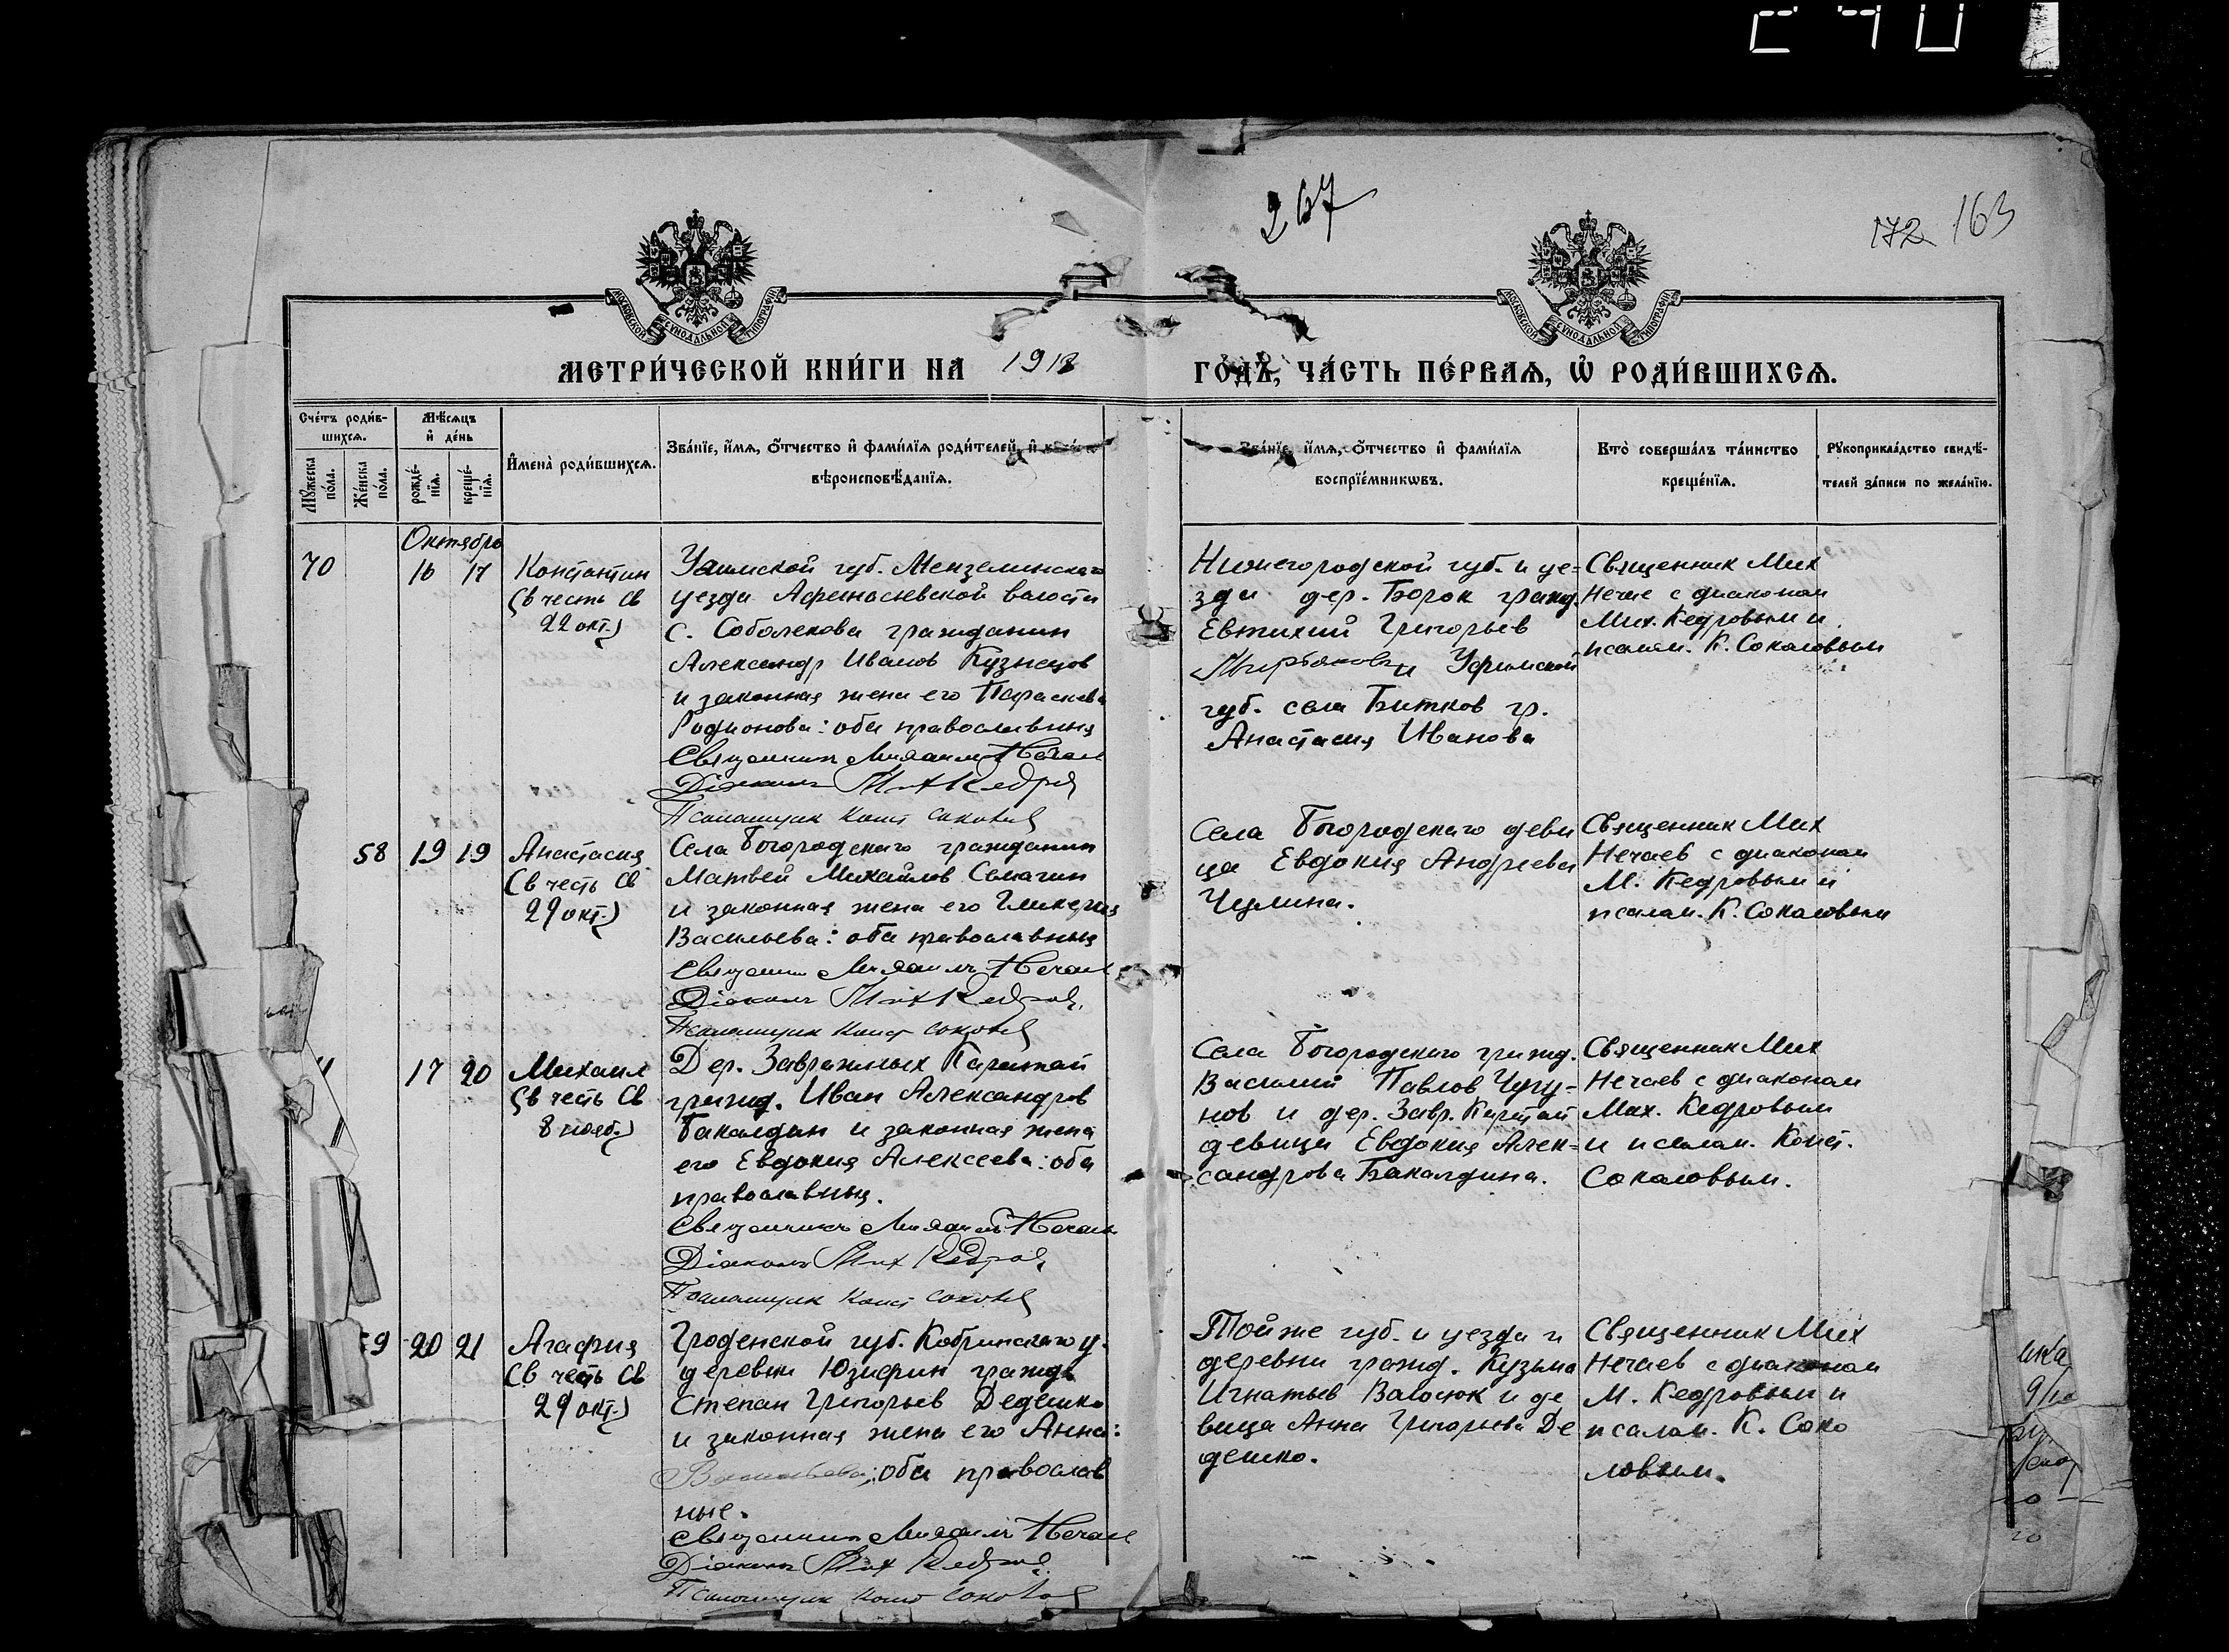 267
172 163
МОСКОВСКОЙ СѴНОДАЛЬНОЙ ТИПОГРАФІИ
МОСКОВСКОЙ СѴНОДАЛЬНОЙ ТИПОГРАФІИ
МЕТРИ́ЧЕСКОЙ КНИ́ГИ НА 1918 ГО́ДЪ, ЧА́СТЬ ПЕ́РВАЯ, Ѡ҆ РОДИ́ВШИХСЯ.
Сче́тъ роди́в-
шихся.
Мꙋ́жеска по́ла.
Же́нска по́ла.
Мѣ́сяцъ
и҆ де́нь
рожде́-
нїя.
креще́-
нїя.
И҆мена̀ роди́вшихся.
Зва́нїе, и҆́мя, ѻ҆́тчество и҆ фами́лїя роди́телей, и҆
вѣроисповѣ́данїя.
Зва́нїе, и҆́мя, ѻ҆́тчество и҆ фами́лїя
воспрїе́мникѡвъ.
Кто̀ соверша́лъ та́инство
креще́нїя.
Рꙋкоприкла́дство свидѣ́-
телей за́писи по жела́нїю.
Октябрь
70
16 17
Константин
(в честь Св
22 окт.)
Уфимской губ. Мензелинскаго
уезда Афанасьевской волости
с. Соболекова гражданин
Александр Иванов Кузнецов
и законная жена его Параскева
Родионова: оба православныя
Священникъ Михаилъ Нечаев
Діаконъ Мих Кедров
Псаломщик Конст Соколов
Нижегородской губ. и уе=
зда дер. Борок гражд.
Евтихий Григорьев
и Уфимской
губ. села Битков гр.
Анастасия Иванова
Священник Мих
Нечае с диаконом
Мих. Кедровым и
псалом. К. Соколовым
58 19 19
Анастасия
(в честь Св
29 окт.)
Села Богородскаго гражданин
Матвей Михайлов Семагин
и законная жена его Гликерия
Васильева: оба православныя
Священник Михаилъ Нечаев
Діаконъ Мих Кедров
Псаломщик Конст Соколов
Села Богородскаго деви
ца Евдокия Андреева
Чулина.
Священник Мих
Нечаев с диаконом
М. Кедровым и
псалом. К. Соколовым
17 20
Михаил
(в честь Св
8 нояб.)
Дер. Завражных Каратай
гражд. Иван Александров
Бакалдин и законная жена
его Евдокия Алексеева: оба
православныя.
Священникъ Михаилъ Нечаев
Діаконъ Мих Кедров
Псаломщик Конст Соколов
Села Богородскаго гражд.
Василий Павлов Чугу-
нов и дер. Завр. Каратай
девица Евдокия Алек=
сандрова Бакалдина.
Священник Мих
Нечаев с диаконом
Мих. Кедровым
и псалом. Конст.
Соколовым.
9 20 21
Агафия
(в честь Св
29 окт.)
Гроденской губ. Кобринскаго у.
деревни Юзефин гражд.
Степан Григорьев Дедешко
и законная жена его Анна:
Васильева; оба православ
ные.
Священникъ Михаилъ Нечаев
Діаконъ Мих Кедров
Псаломщик Конст Соколов
Той же губ. и уезда и
деревни гражд. Кузьма
Игнатьев Васюк и де
вица Анна Григорьева Де
дешко.
Священник Мих
Нечаев с диаконом
М. Кедровым и
псалом. К. Соко
ловым.